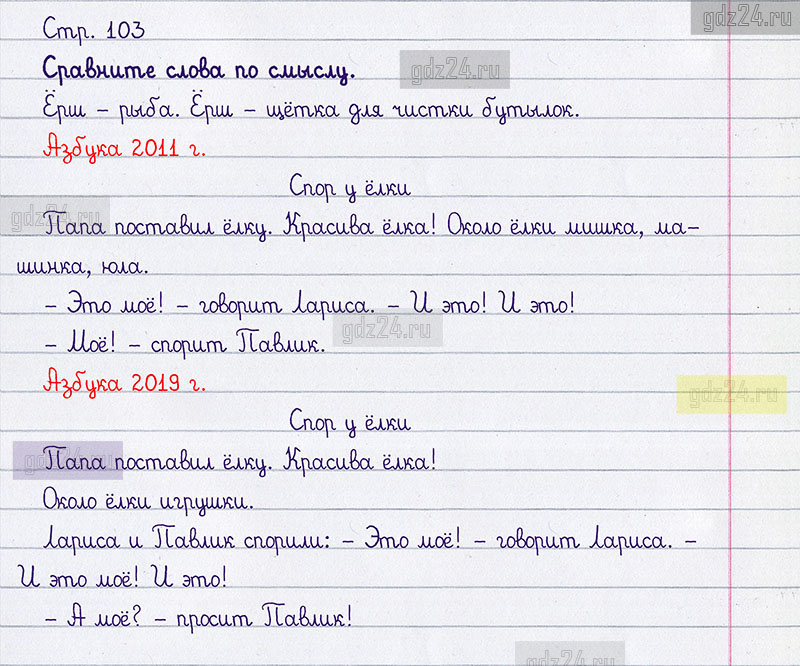 gdz24.ru
Стр. 103
Сравните слова по смыслу.
gdz24.ru
Ёрш – рыба. Ёрш – щётка для чистки бутылок.
Азбука 2011 г.
Спор у ёлки
gdz24.ru
Папа поставил ёлку. Красива ёлка! Около ёлки мишка, ма-
шинка, юла.
– Это моё! – говорит Лариса. – И это! И это!
gdz24.ru
– Моё! – спорит Павлик.
Азбука 2019 г.
gdz24.ru
Спор у ёлки
gdz24.ru
Папа поставил ёлку. Красива ёлка!
Около ёлки игрушки.
Лариса и Павлик спорили: – Это моё! – говорит Лариса. –
И это моё! И это!
– А моё? – просит Павлик!
gdz24.ru